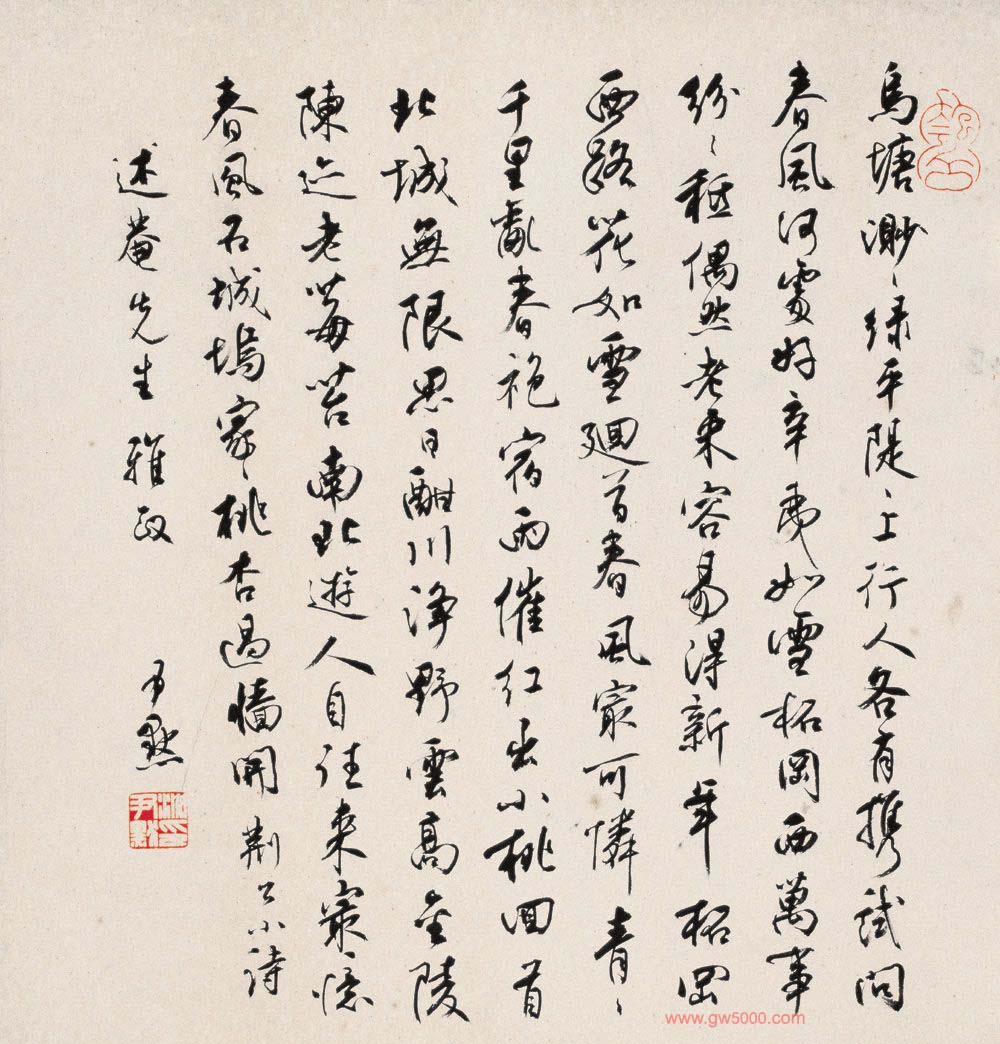 烏塘渺〻緑平隄〻上行人各有携試問
春風何處好辛夷如雪柘岡西萬事
紛〻秪偶然老来容易得新年柘岡
西路花如雪迴首春風最可憐青〻
千里亂春袍宿雨催红出小桃回首
北城無限思日酣川浄野雲高金陵
陳迹老莓苔南北遊人自往来最憶
春風石城塢家〻桃杏過牆開 荆公小詩
述菴先生雅政 尹默
沈尹默印
www.gw5000.com